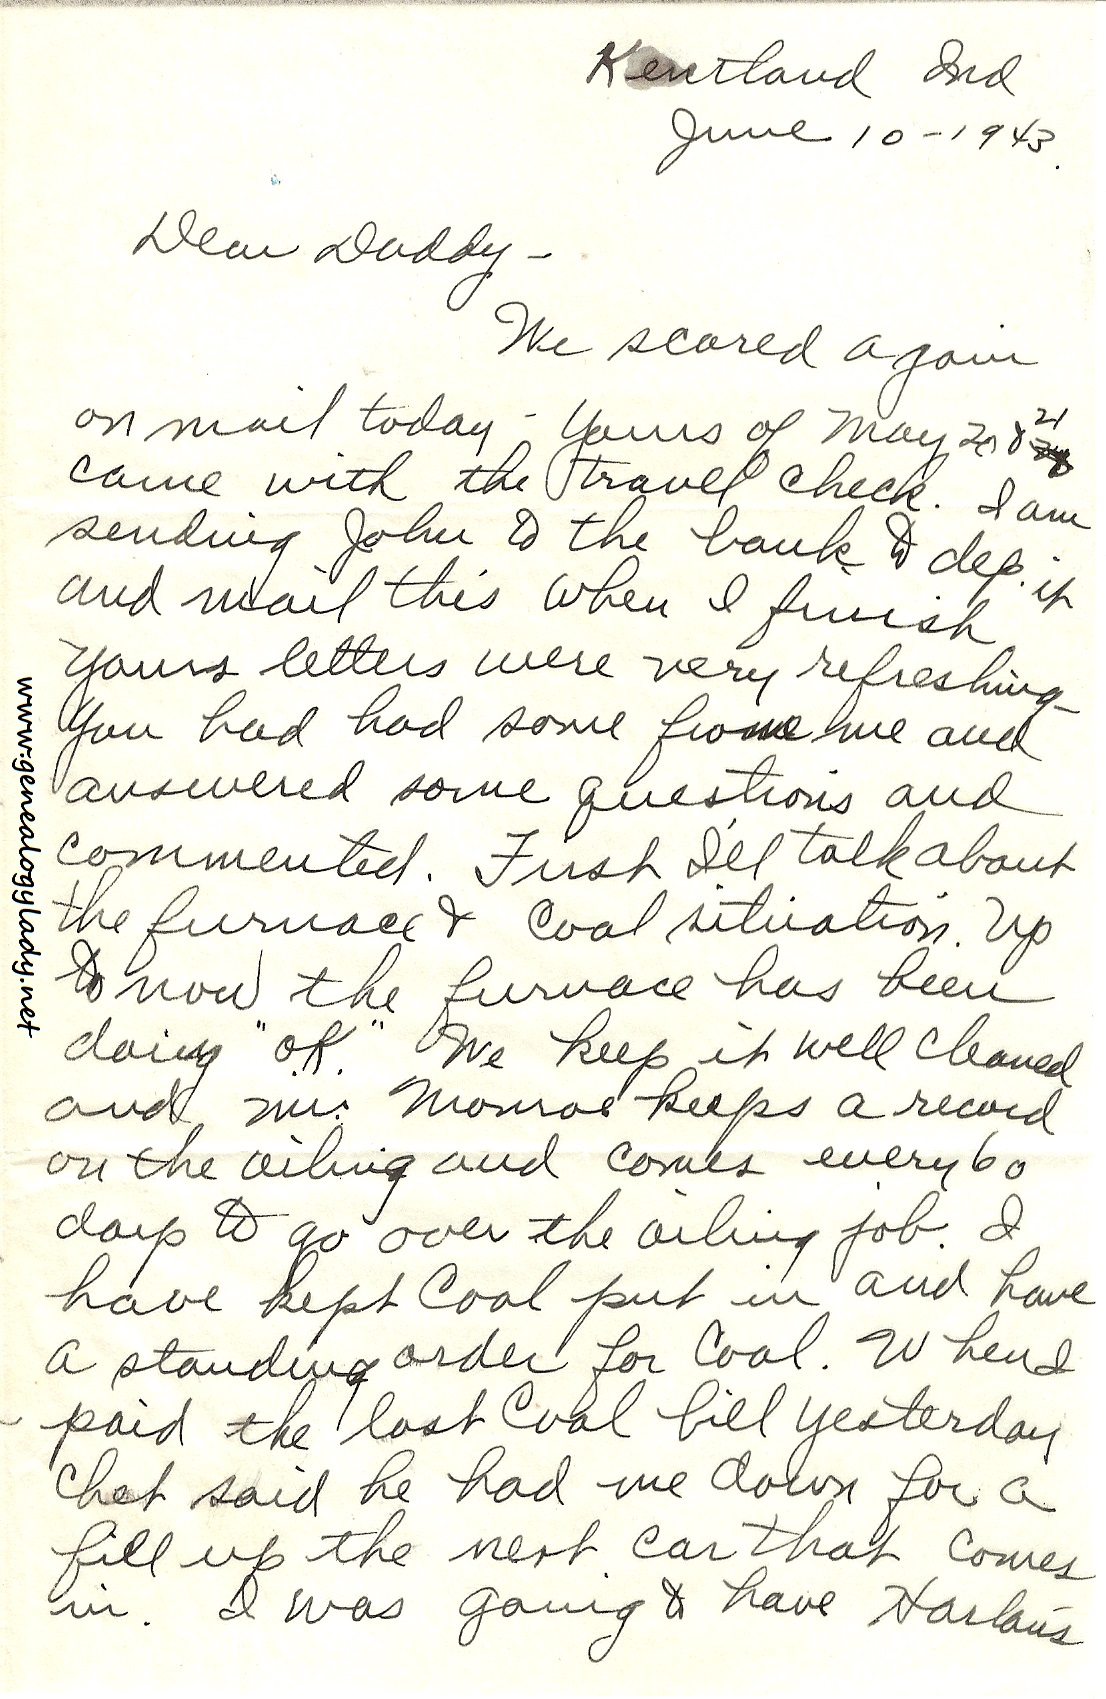 Kentland Ind
June 10-1943.
Dear Daddy-
We scored again
on mail today - Yours of May 20 & 21
came with the travel check. I am
sending John to the bank to dep. it
and mail this when I finish
Yours letters were very refreshing-
You had had some from me and
answered some questions and
commented. First I'll talk about
the furnace & Coal situation. Up
to now the furnace has been
doing "OK." We keep it well cleaned
and Mr. Monroe keeps a record
on the oiling and comes every 60
days to go over the oiling job. I
have kept Coal put in and have
a standing order for Coal. When I
paid the last Coal bill yesterday
Chet said he had me down for a
fill up the next car that comes
in. I was going to have Harlan's
www.genealogylady.net